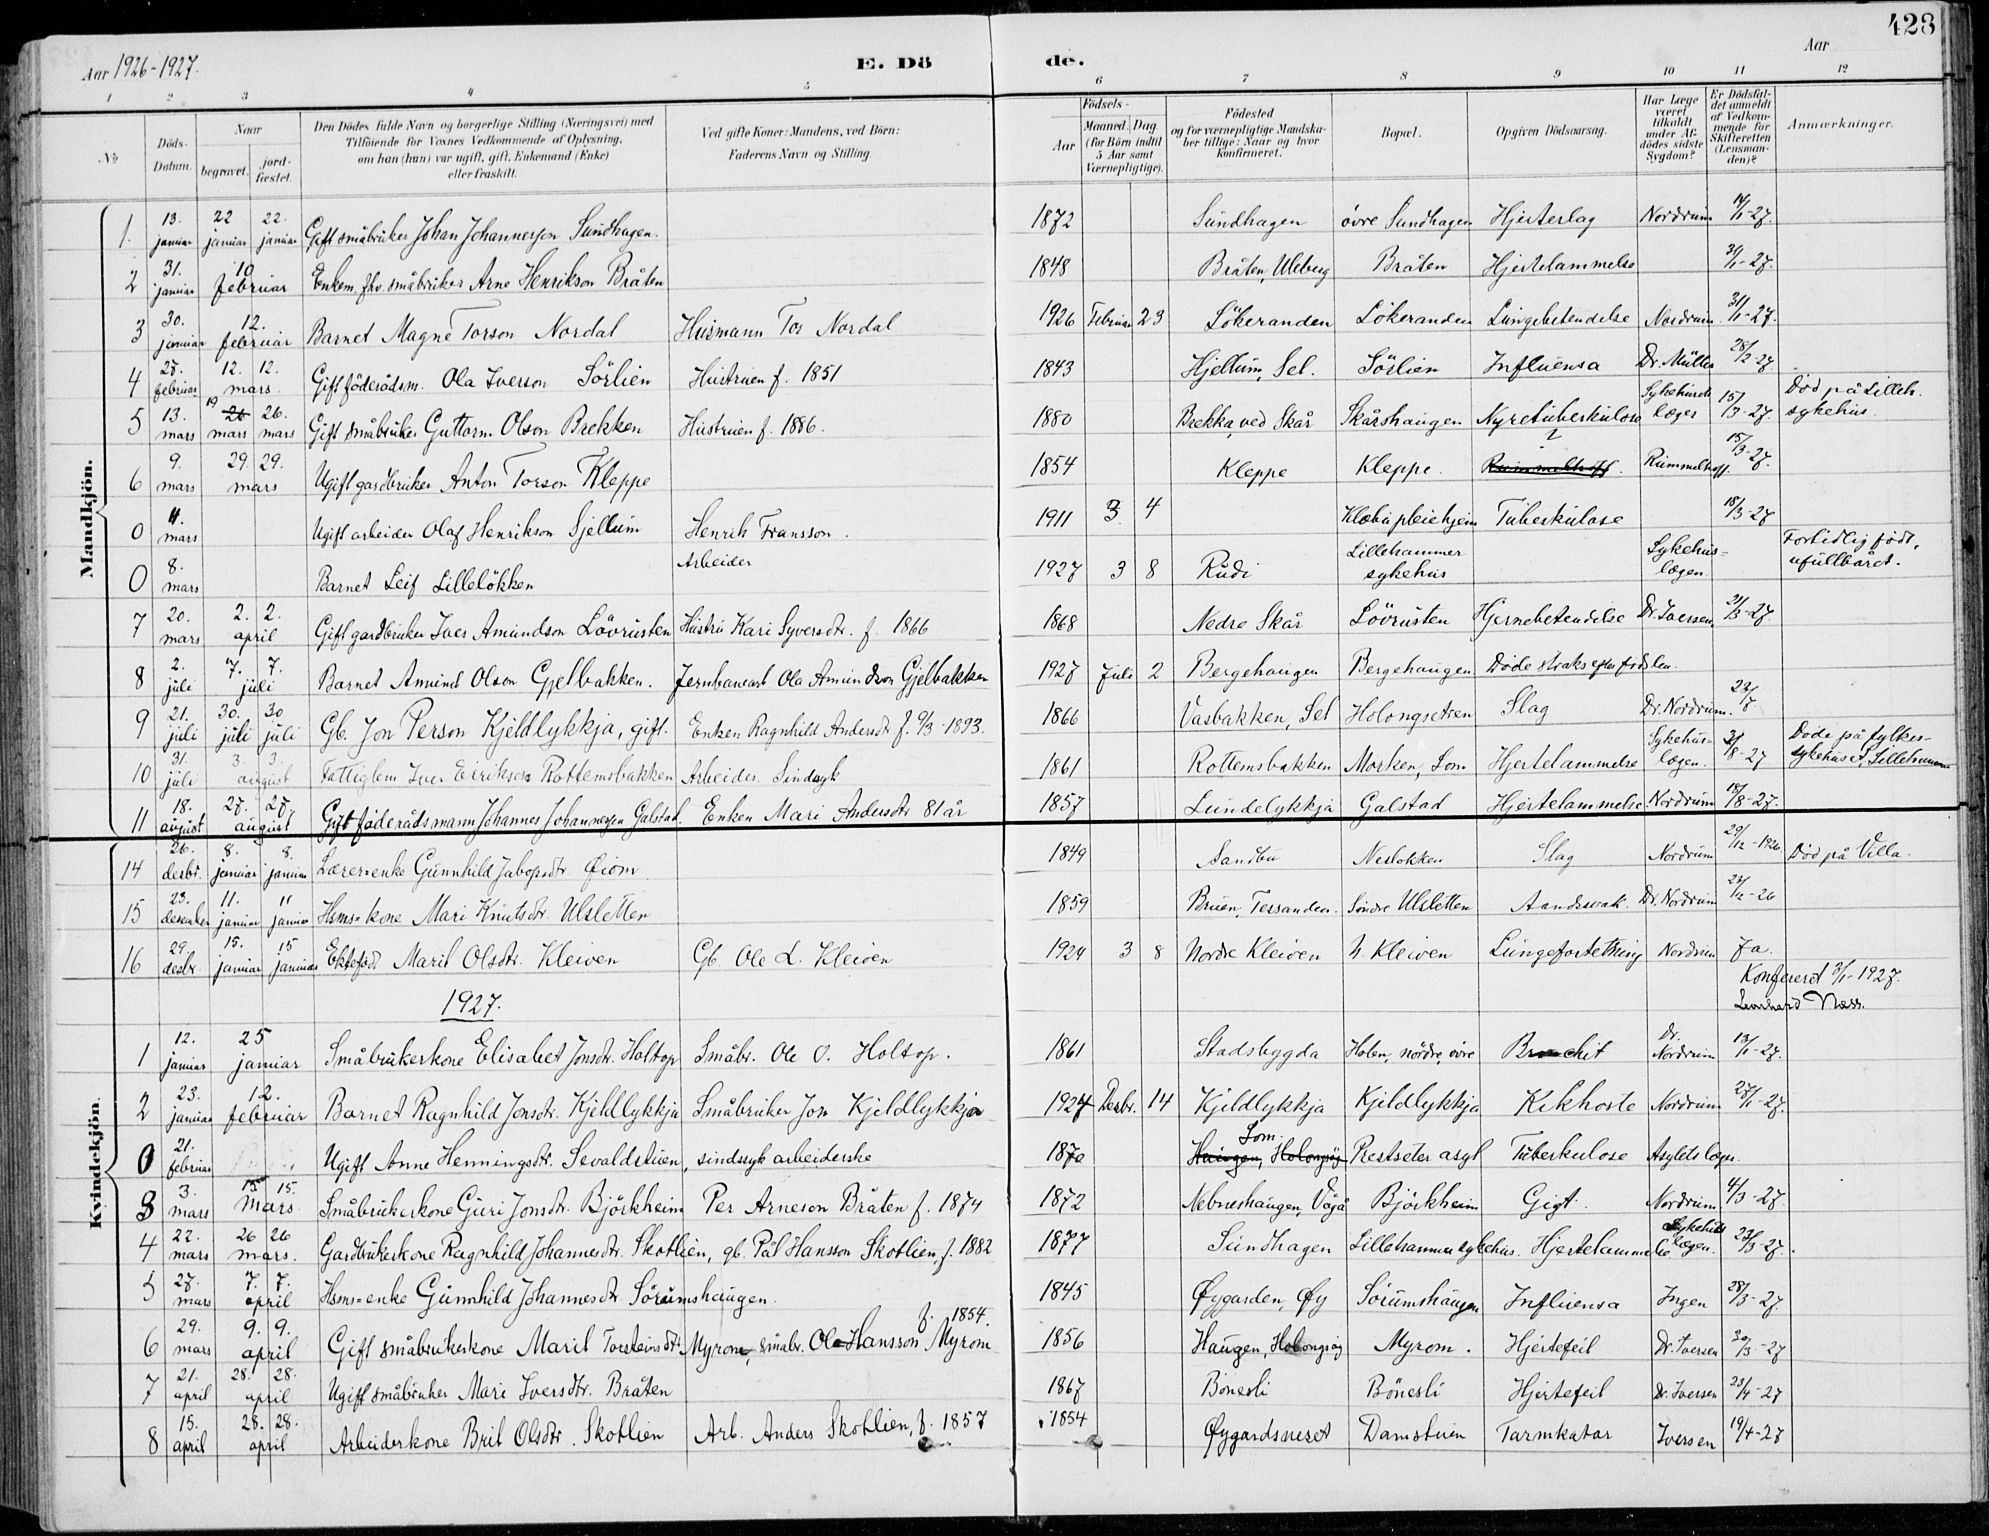 428
Aar 1926-1927.
E. Dö de.
Aar
1 2 3 4 5 6 7 8 9 10 11 12
No
Döds-Datum.
Naar begravet. jordfæstet.
Den Dödes fulde Navn og borgerlige Stilling (Næringsvei) med Tilföiende for Voxnes Vedkommende af Oplysning, om han (hun) var ugift, gift, Enkemand (Enke) eller fraskilt.
Ved gifte Koner: Mandens, ved Börn: Faderens Navn og Stilling.
Födsels-
Aar
Maaned. Dag (for Börn indtil 5 Aar samt Værnepligtige).
Födested og for værnepligtige Mandskaber tillige: Naar og hvor konfirmeret.
Bopæl.
Opgiven Dödsaarsag.
Har Læge været tilkaldt under Afdödes sidste Sygdom?
Er Dödsfaldet anmeldt af Vedkommende for Skifteretten (Lensmanden)?
Anmærkninger.
Mandkjön.
1. 13. januar 22 januar 22. januar Gift småbruker Johan Johannesson Sundhagen. 1872 Sundhagen övre Sundhagen Hjerteslag Nordrum 14/1-27.
2 31. januar 10 februar Enkem. fhv. småbruker Arne Henrikson Bråten 1848 Bråten, Uleberg Bråten Hjertelammelse 31/1-27.
3 30. januar 12. februar Barnet Magne Torson Nordal Husmann Tor Nordal 1926 Februar 23 Lökeranden Lökeranden Lungebetendelse Nordrum 31/1-27.
4 27. februar 12. 12. mars Gift föderådsm. Ola Iverson Sörlien Hustruen f. 1851 1843 Hjellum, Sel. Sörlien Influensa Dr. Müller 28/2-27
5 13. mars 19 26 mars 26. mars Gift småbruker Guttorm Olson Brekken Hustruen f. 1886. 1880 Brekka, ved Skår Skårshaugen Nyretuberkulose Sykehusets læger 15/3-27. Död på Lilleh. sykehus.
6 9. mars 29. 29. mars Ugift gardbruker Anton Torson Kleppe 1854 Kleppe Kleppe. ? Rummelhoff. Rummelhoff. 15/3-27.
0 11. mars Ugift arbeider Olaf Henrikson Sjellum Henrik Fransson. 1911 3 4 Klæbu pleiehjem Tuberkulose 18/3-27
0 8. mars Barnet Leif Lillelökken Arbeider 1927 3 8 Rudi Lillehammer sykehus Sykehus-lægen. Fortidlig födt, ufullbåret.
7 20. mars 2. 2. april Gift gardbruker Iver Amundson Lövrusten Hustru Kari Syversdtr. f. 1866 1868 Nedre Skår Lövrusten Hjernebetendelse Dr. Iversen 21/3-27.
8 2. juli 7. 7. juli Barnet Amund Olson Gjelbakken. Jernbanearb Ola Amundson Gjelbakken 1927 Juli 2 Bergehaugen Bergehaugen Döde straks efter födslen.
9 21. juli 30. juli 30 juli Gb. Jon Person Kjeldlykkja, gift. Enken Ragnhild Andersdtr f. 9/3-1893. 1866 Vasbakken, Sel Holongsetren Slag Dr. Nordrum. 22/7
10 31. juli 3. 3. august Fattiglem Iver Erikson Rottemsbakken Arbeider. Sindsyk 1861 Rottemsbakken Marken, Lom Hjertelammelse Sykehus-lægen. /8-27 Döde på fylkes-sykehuset, Lillehammer
11 18. august 27. 27. august Gift föderådsmann Johannes Johannessen Galstad. Enken Mari Andersdtr 81 år 1857 Lundelykkja Galstad Hjertelammelse Nordrum 18/8-27.
Kvindekjön.
14 26. desbr. 8. januar 8. januar Lærerenke Gunnhild Jakopsdtr. Öiom 1849 Sandbu Neslökken Slag Nordrum 29/12-1926. Död på Villa.
15 23. desember 11. januar 11 januar Hsms-kone Mari Knutsdtr. Ulsletten 1859 Bruen, Tessanden. Söndre Ulsletten Aandssvak. Dr. Nordrum 27/12-26
16 29. desbr. 15. januar 15 januar Ektefödt Marit Olsdtr. Kleiven Gb. Ole L. Kleiven 1924 3 8 Nordre Kleiven N. Kleiven Lungefortetning Nordrum Ja.
Konfereret 3/1-1927.
Leonhard Næss.
1927.
1 12. januar 25 januar Småbrukerkone Elisabet Jonsdtr. Holtop Småbr. Ole O. Holtop. 1861 Stadsbygda Holen, nördre, övre Bronchit Dr. Nordrum 13/1-27.
2 23. januar 12. februar Barnet Ragnhild Jonsdtr. Kjeldlykkja Småbruker Jon Kjeldlykkja 1924 Desbr. 14 Kjeldlykkja Kjeldlykkja Kikhoste Nordrum 27/1-27.
0 21. februar Ugift Anne Henningsdtr. Sevaldstuen, sindssyk arbeiderske 1870 Lom. Haugen, Holongsöy Prestseter asyl Tuberkulose Asylets læger.
3 3. mars 15 15. mars. Småbrukerkone Guri Jonsdtr. Björkheim Per Arneson Bråten f. 1874 1872 Nebneshaugen, Vågå Björkheim Gigt. Nordrum 4/3-27.
4 22. mars 26 26 mars. Gardbrukerkone Ragnhild Johannesdtr. Skotlien, gb. Pål Hansson Skotlien, f. 1882 1877 Sundhagen Lillehammer sykehus. Hjertelammelse Sykehus lægen. 23/3-27.
5 27. mars 7. 7. april Hsms-enke Gunnhild Johannesdtr Sörumshaugen. 1845 Öygarden, Öy Sörumshaugen Influensa Ingen 28/3-27
6 29. mars 9. 9. april Gift småbrukerkone Marit Torsteinsdtr Myrom, småbr. Ole Hansson Myrom f. 1854. 1856 Haugen, Holongsöy Myrom. Hjertefeil Dr. Iversen 30/3-27
7 21. april 28. 28. april Ugift småbruker Mari Iversdtr. Bråten 1867 Bönesli Bönesli Hjertefeil Dr. Iversen 23/4-27
8 15. april 28. 28. april Arbeiderkone Brit Olsdtr. Skotlien Arb. Anders Skotlien, f. 1857 1854 Öygardsneset Damstuen Tarmkatar Iversen 19/4-27